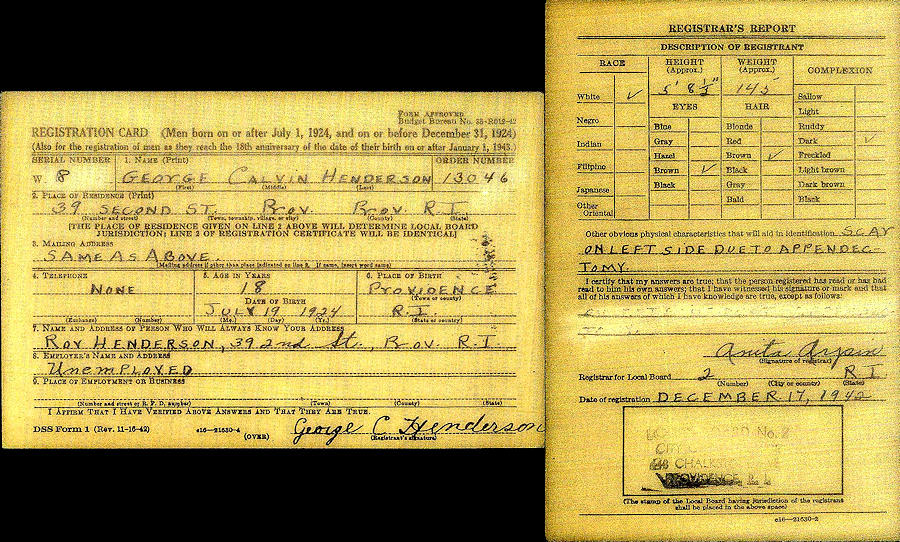 FORM APPROVED
Budget Bureau No. 33-R012-42
REGISTRATION CARD (Men born on or after July 1, 1924, and on or before December 31, 1924)
(Also for the registration of men as they reach the 18th anniversary of the date of their birth on or after January 1, 1943.)
SERIAL NUMBER 1. NAME (Print) ORDER NUMBER
W 8 GEORGE CALVIN HENDERSON 13046
(First) (Middle) (Last)
2. PLACE OF RESIDENCE (Print)
39 SECOND ST. PROV. PROV. R.I.
(Number and street) (Town, township, village, or city) (County) (State)
[THE PLACE OF RESIDENCE GIVEN ON LINE 2 ABOVE WILL DETERMINE LOCAL BOARD
JURISDICTION; LINE 2 OF REGISTRATION CERTIFICATE WILL BE IDENTICAL]
3. MAILING ADDRESS
SAME AS ABOVE
[Mailing address if other than place indicated on line 2. If same, insert word same]
4. TELEPHONE 5. AGE IN YEARS 6. PLACE OF BIRTH
NONE 18 PROVIDENCE
DATE OF BIRTH (Town or county)
JULY 19 1924 R.I.
(Exchange) (Number) (Mo.) (Day) (Yr.) (State or country)
7. NAME AND ADDRESS OF PERSON WHO WILL ALWAYS KNOW YOUR ADDRESS
ROY HENDERSON, 39 2nd St., Prov. R.I.
8. EMPLOYER'S NAME AND ADDRESS
UNEMPLOYED
9. PLACE OF EMPLOYMENT OR BUSINESS
(Number and street or R. F. D. number) (Town) (County) (State)
I AFFIRM THAT I HAVE VERIFIED ABOVE ANSWERS AND THAT THEY ARE TRUE.
DSS Form 1 (Rev. 11-16-42) c16-21630-4 (OVER) George C Henderson
(Registrant's signature)
REGISTRAR'S REPORT
DESCRIPTION OF REGISTRANT
RACE HEIGHT (Approx.) WEIGHT (Approx.) COMPLEXION
5' 8½" 145
White ✓ EYES HAIR Sallow
Light
Negro Blue Blonde Ruddy
Indian Gray Red Dark ✓
Hazel Brown ✓ Freckled
Filipino Brown ✓ Black Light brown
Japanese Black Gray Dark brown
Other Oriental Bald Black
Other obvious physical characteristics that will aid in identification SCAR
ON LEFT SIDE DUE TO APPENDEC-
TOMY.
I certify that my answers are true; that the person registered has read or has had
read to him his own answers; that I have witnessed his signature or mark and that
all of his answers of which I have knowledge are true, except as follows:
Anita
(Signature of registrar)
Registrar for Local Board 2 R I
(Number) (City or county) (State)
Date of registration DECEMBER 17, 1942
No. 2
CHALKSTONE
PROVIDENCE, R. I.
(The stamp of the Local Board having jurisdiction of the registrant
shall be placed in the above space)
c16-21630-2